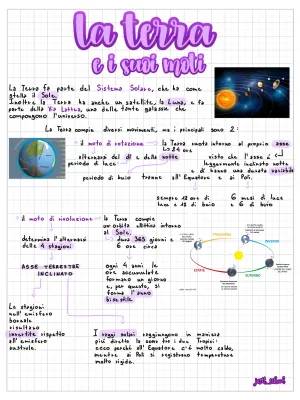 la terra
e i suoi moti
La Terra fa parte del Sistema Solare, che ha come
stella il Sole.
Inoltre la Terra ha anche un satellite, la Luna, e fa
parte della Via Lattea, una delle tante galassie che
compongono l'universo.
La Terra compie diversi movimenti, ma i principali sono 2:
il moto di rotazione
la Terra ruota intorno al proprio asse
in 24 ore
alternarsi del dì e della notte
periodo di luce
periodo di buio
visto che l'asse è
leggermente inclinato notte
e dì hanno una durata variabile
tranne all'Equatore e ai Poli.
sempre 12 ore di
luce e 12 di buio
6 mesi di luce
e 6 di buio
il moto di rivoluzione
la Terra compie
un'orbita ellittica intorno
al Sole.
determina l'alternarsi
delle 4 stagioni
dura 365 giorni e
6 ore circa
ASSE TERRESTRE
INCLINATO
ogni 4 anni le
ore accumulate
formano un giorno
e, per questo, si
forma l'anno
bisestile
PRIMAVERA
INVERNO
ESTATE
AUTUNNO
Le stagioni
nell'emisfero
boreale
risultano
invertite rispetto
all'emisfero
australe.
I raggi solari raggiungono in maniera
più diretta la zona tra i due Tropici:
ecco perché all'Equatore c'è molto caldo,
mentre ai Poli si registrano temperature
molto rigide.